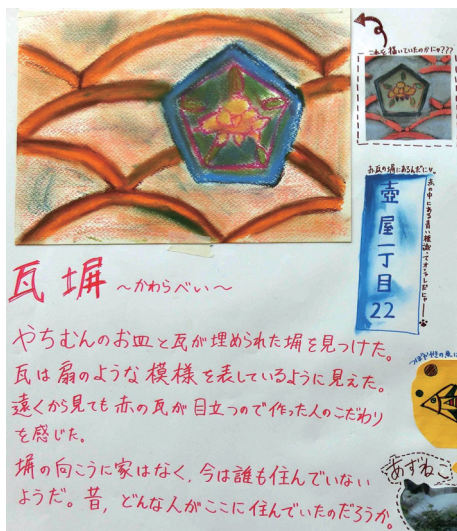 これを描いていたのかにゃ???
赤瓦の塀にあるんだにゃ。
壺屋一丁目
22
瓦塀 ～かわらべい～
やちむんのお皿と瓦が埋められた塀を見つけた。
瓦は扇のような模様を表しているように見えた。
遠くから見ても赤の瓦が目立つので作った人のこだわり
を感じた。
塀の向こうに家はなく、今は誰も住んでいない
ようだ。昔，どんな人がここに住んでいたのだろうか。
あずねこ